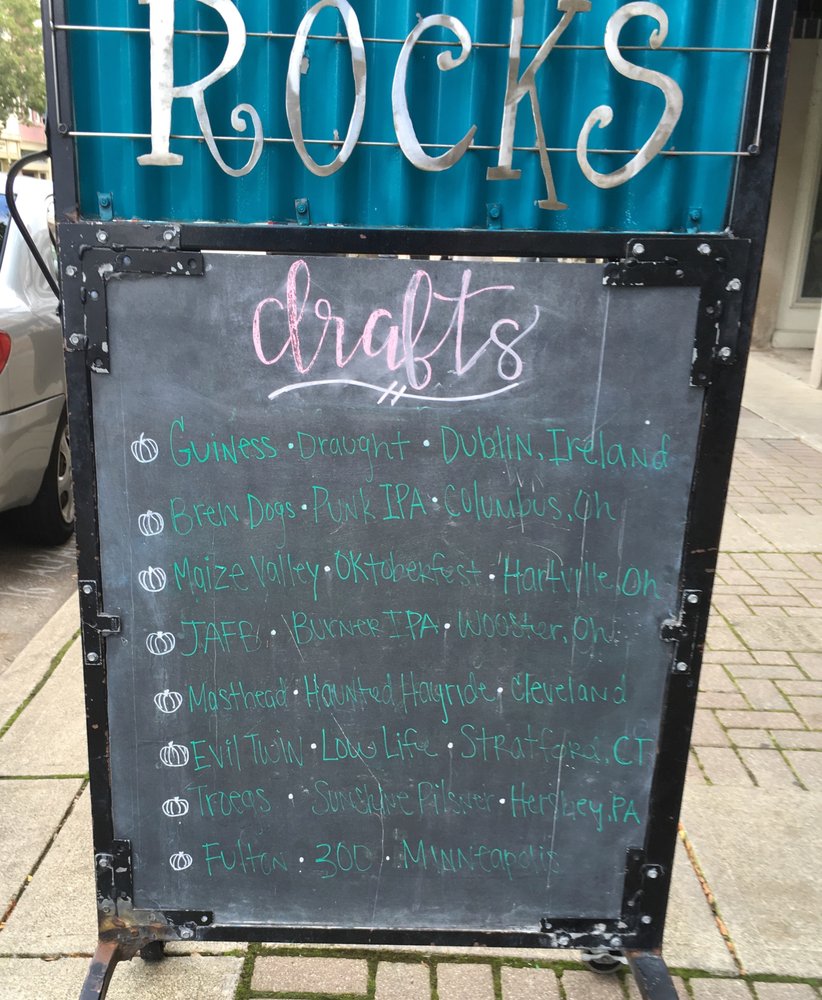 ROCKS
drafts
Guiness • Draught • Dublin, Ireland
Brew Dogs • Punk IPA • Columbus, Oh
Maize Valley • Oktoberfest • Hartville, Oh
JAFB • Burner IPA • Wooster, Oh
Masthead • Haunted Hayride • Cleveland
Evil Twin • Low Life • Stratford, CT
Troegs • Sunshine Pilsner • Hershey, PA
Fulton • 300 • Minneapolis